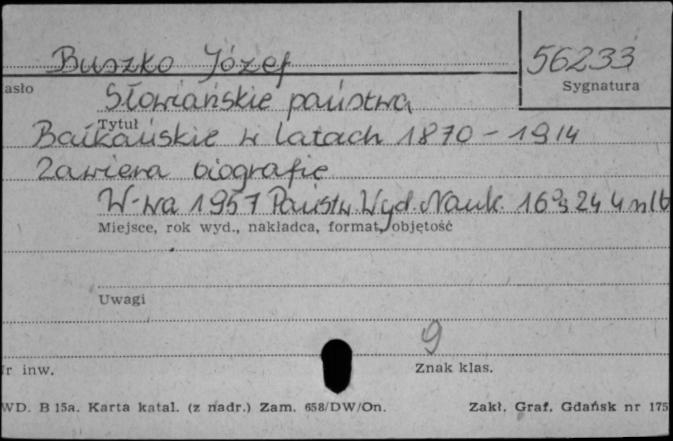 Buszko Józef 56233
asło Sygnatura
Słowiańskie państwa
Tytuł
Bałkańskie w latach 1870-1914
Zawiera biografię
W-wa 1957 Państw. Wyd. Nauk. 16° s 24 4 nlb
Miejsce, rok wyd., nakładca, format, objętość
Uwagi
9
r inw. Znak klas.
WD. B 15a. Karta katal. (z nadr.) Zam. 658/DW/On. Zakł. Graf. Gdańsk nr 175